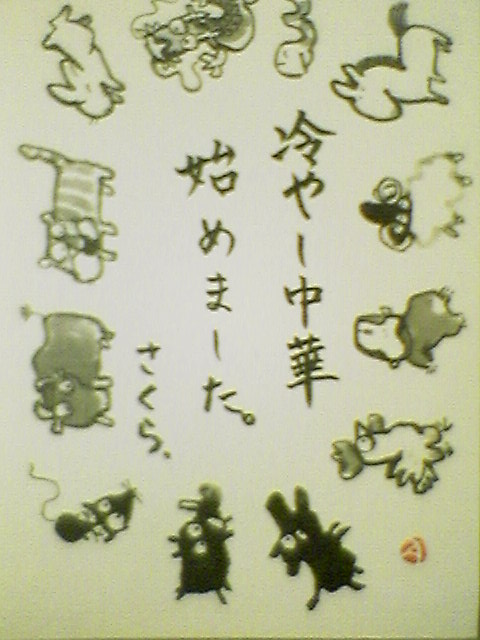 冷やし中華
始めました。
さくら、